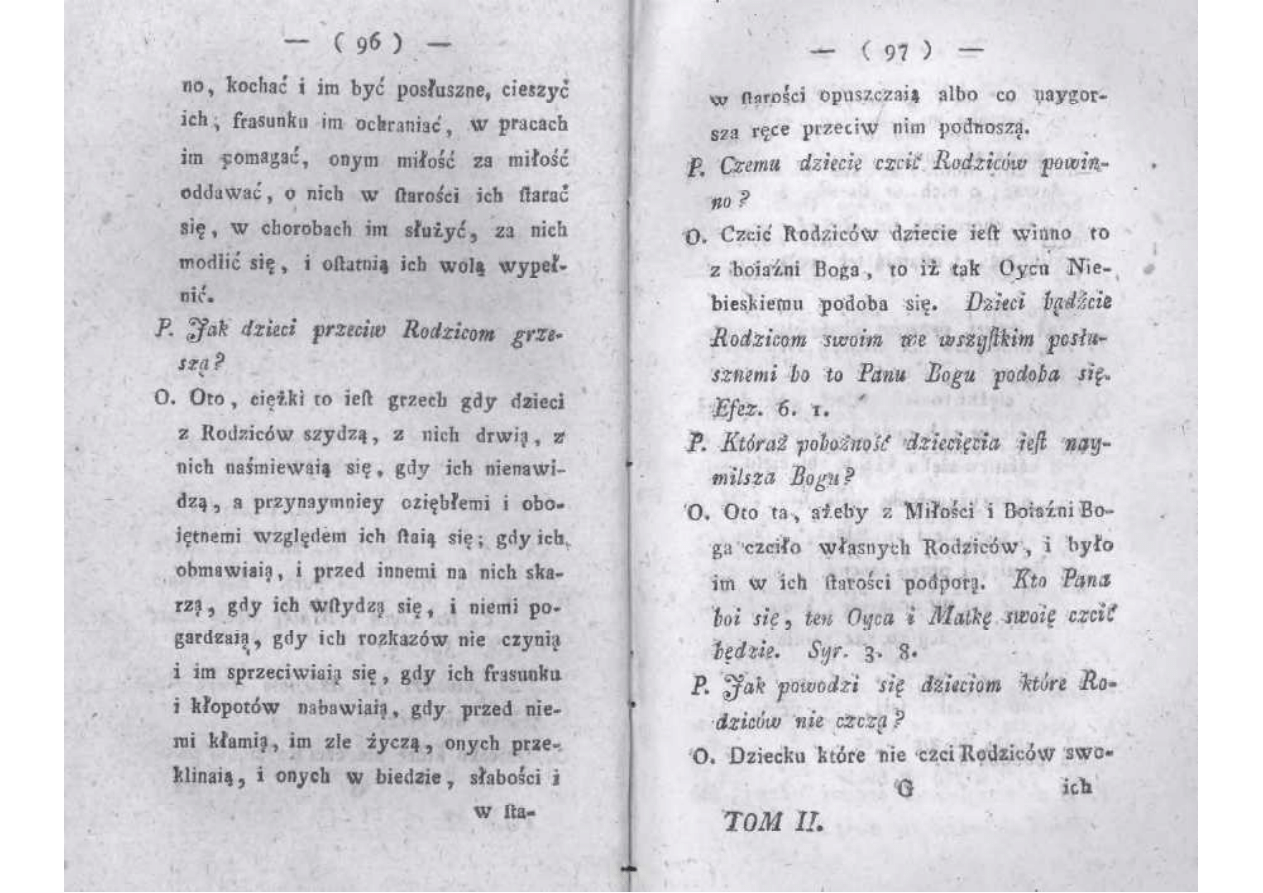 — ( 96 ) —
no, kochać i im być posłuszne, cieszyć
ich, frasunku im ochraniać, w pracach
im pomagać, onym miłość za miłość
oddawać, o nich w ſtarości ich ſtarać
się, w chorobach im służyć, za nich
modlić się, i oſtatnią ich wolą wypeł-
nić.
P. Jak dzieci przeciw Rodzicom grze-
szą?
O. Oto, ciężki to ieſt grzech gdy dzieci
z Rodziców szydzą, z nich drwią, z
nich naśmiewaią się, gdy ich nienawi-
dzą, a przynaymniey oziębłemi i obo-
iętnemi względem ich ſtaią się; gdy ich
obmawiaią, i przed innemi na nich ska-
rzą, gdy ich wſtydzą się, i niemi po-
gardzaią, gdy ich rozkazów nie czynią
i im sprzeciwiaią się, gdy ich frasunku
i kłopotów nabawiaią, gdy przed nie-
mi kłamią, im zle życzą, onych prze-
klinaią, i onych w biedzie, słabości i
w ſta-
— ( 97 ) —
w ſtarości opuszczaią albo co naygor-
sza ręce przeciw nim podnoszą.
P. Czemu dziecię czcić Rodziców powin-
no?
O. Czcić Rodziców dziecie ieſt winno to
z boiaźni Boga, to iż tak Oycu Nie-
bieskiemu podoba się. Dzieci bądźcie
Rodzicom swoim we wszyſtkim posłu-
sznemi bo to Panu Bogu podoba się.
Efez. 6. 1.
P. Któraż pobożność dziecięcia ieſt nay-
milsza Bogu?
O. Oto ta, ażeby z Miłości i Boiaźni Bo-
ga czciło własnych Rodziców, i było
im w ich ſtarości podporą. Kto Pana
boi się, ten Oyca i Matkę swoię czcić
będzie. Syr. 3. 8.
P. Jak powodzi się dzieciom które Ro-
dziców nie czczą?
O. Dziecku które nie czci Rodziców swo-
G ich
TOM II.